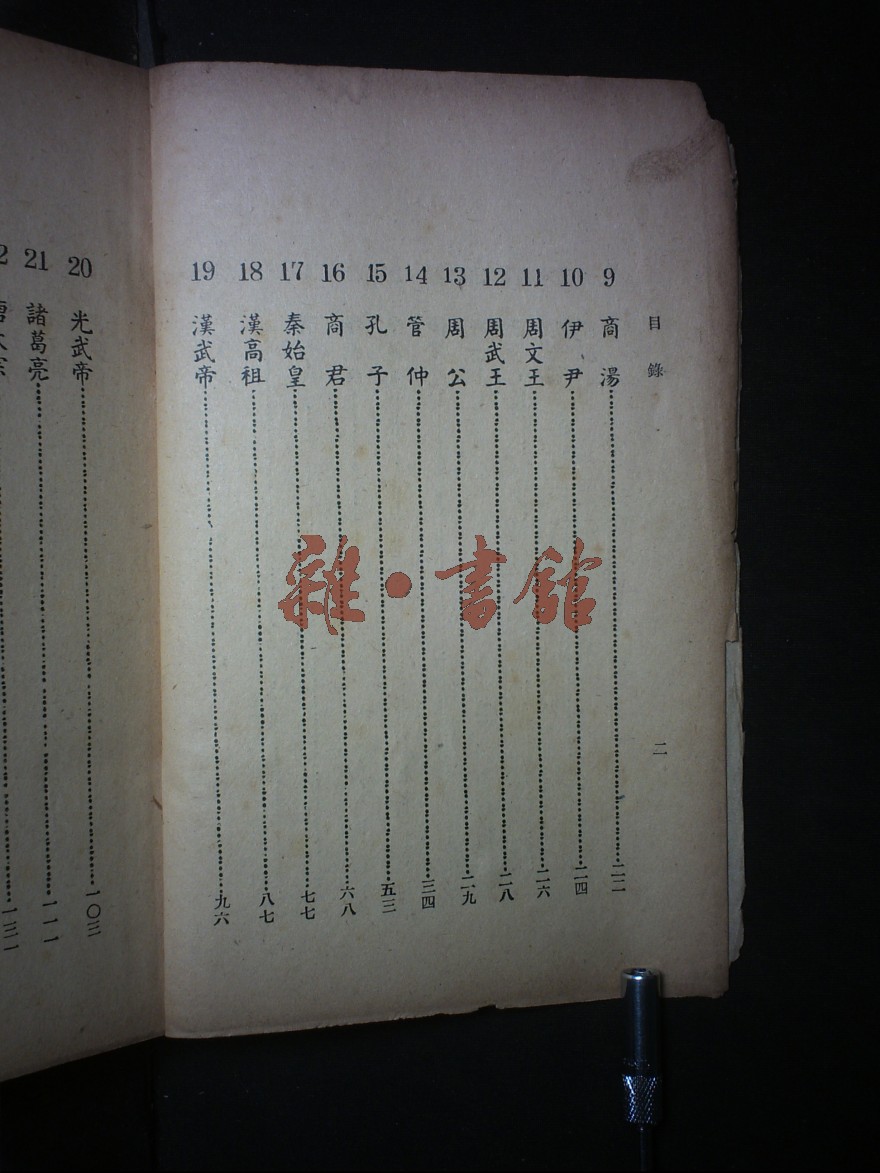 目錄
二
9 商湯 二二
10 伊尹 二四
11 周文王 二六
12 周武王 二八
13 周公 二九
14 管仲 三四
15 孔子 五三
16 商君 六八
17 秦始皇 七七
18 漢高祖 八七
19 漢武帝 九六
20 光武帝 一〇三
21 諸葛亮 一一一
一三一
雜·書館